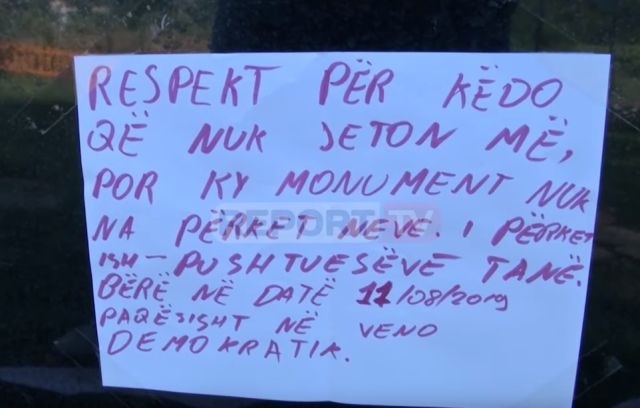 RESPEKT PËR KËDO
QË NUK JETON MË,
POR KY MONUMENT NUK
NA PËRKET NEVE. I PËRKET
ISH-PUSHTUESËVE TANË.
BËRË NË DATË 11/08/2019
PAQËSISHT NË VENO
DEMOKRATIK.
REPORT TV